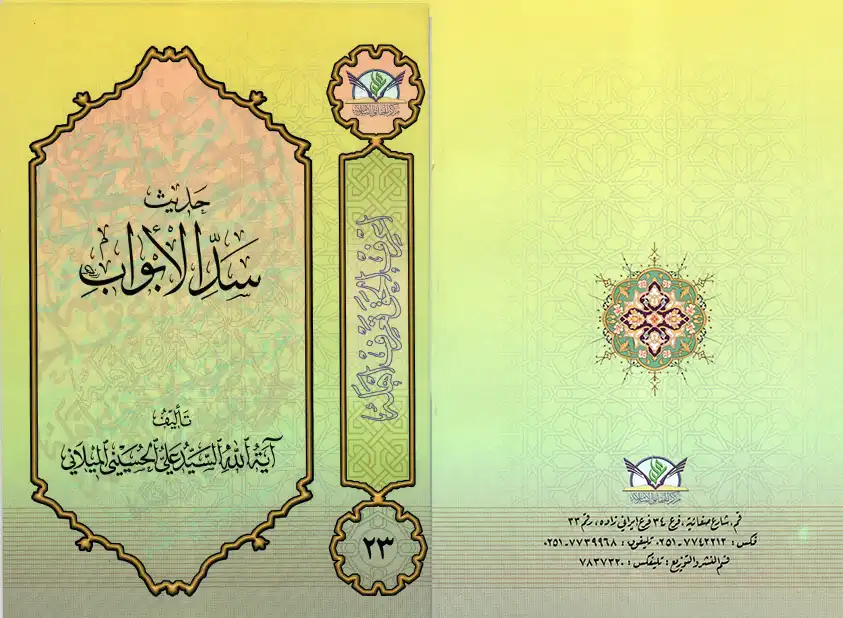 حَدِيث
سَدِّ الأَبْوَابِ
تَأليفُ
آيَةُ اللهِ السَّيِّدُ عَلِيُّ الحُسَيْنِي المِيلَانِي
مركز الحقائق الإسلامية
اعرف الحق تعرف أهله
٢٣
مركز الحقائق الإسلامية
قم، شارع صفائية، فرع ٣٤ فرع ايراني زاده، رقم ٣٣
فكس: ٧٧٤٢٢١٢-٠٢٥١ تليفون: ٧٧٣٩٩٦٨-٠٢٥١
قسم النشر والتوزيع: تليفكس: ٧٨٣٧٣٢٠